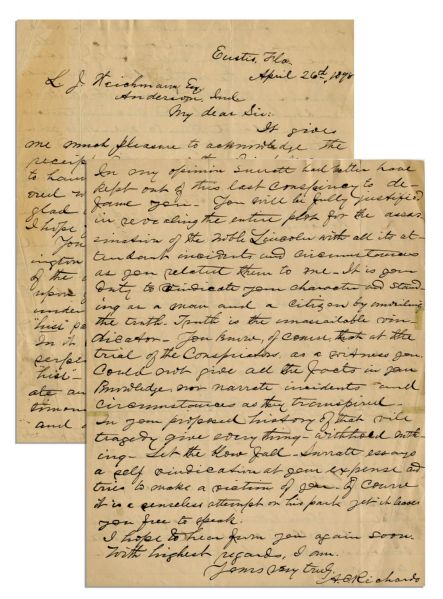 Eustis, Fla.
April 26th, 1898
L. J. Weichmann, Esq
Anderson, Ind
My dear Sir:
It gives
me much pleasure to acknowledge the
receip
to ha
glad
I hope
You
ington
of the
upon
under
"his"
In it
serpe
his
ate an
and
In my opinion Surratt had better have
kept out of this last conspiracy to de-
fame you. You will be fully justified
in revealing the entire plot for the assas-
sination of the Noble Lincoln with all its at-
tendant incidents and circumstances
as you related them to me. It is your
duty to vindicate your character and stand-
ing as a man and a citizen by unveiling
the truth. Truth is the unassailable vin-
dicator. You knew, of course, that at the
trial of the Conspirators, as a witness you
could not give all the facts in your
knowledge, nor narrate incidents and
circumstances as they transpired.
In your proposed history of that vile
tragedy give everything - withhold noth-
ing. Let the blow fall. Surratt essays
a self vindication at your expense and
tries to make a victim of you. Of course
it is a senseless attempt on his part, yet it leaves
you free to speak.
I hope to hear from you again soon.
With highest regards, I am.
Yours very truly,
A. C. Richards